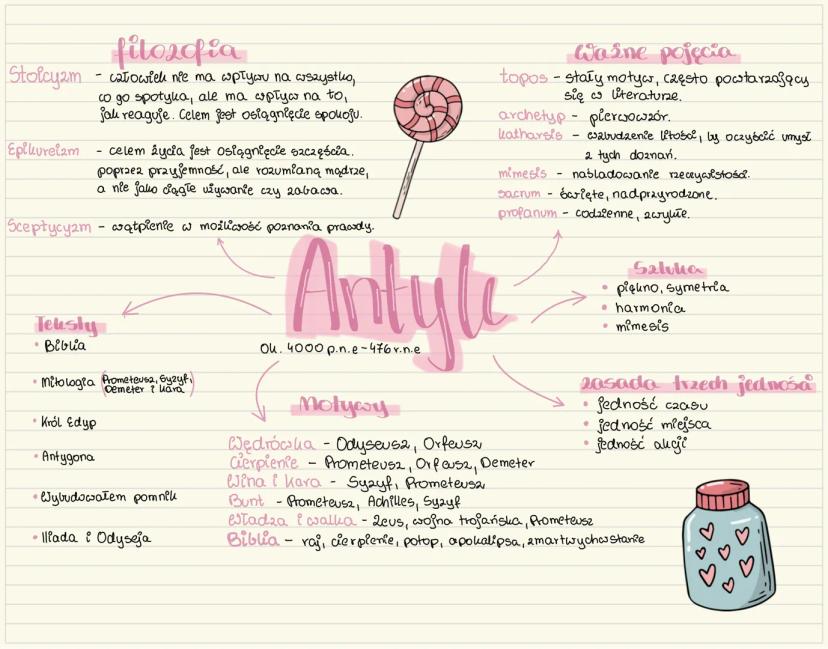 filozofia
Stoicyzm - człowiek nie ma wpływu na wszystko,
co go spotyka, ale ma wpływ na to,
jak reaguje. Celem jest osiągnięcie spokoju.
Epikureizm - celem życia jest osiągnięcie szczęścia.
poprzez przyjemność, ale rozumianą mądrze,
a nie jako ciągłe używanie czy zabawa.
Sceptycyzm - wątpienie w możliwość poznania prawdy.
ważne pojęcia
topos - stały motyw, często powtarzający
się w literaturze.
archetyp - pierwowzór.
katharsis - wzbudzenie litości, by oczyścić umysł
z tych doznań.
mimesis - naśladowanie rzeczywistości.
sacrum - święte, nadprzyrodzone.
profanum - codzienne, zwykłe.
Antyk
Ok. 4000 p.n.e - 476 r.n.e
Sztuka
• piękno, symetria
• harmonia
• mimesis
Teksty
• Biblia
• Mitologia (Prometeusz, Syzyf,
Demeter i Kora)
• Król Edyp
• Antygona
• Wybudowałem pomnik
• Iliada i Odyseja
zasada trzech jedności
• jedność czasu
• jedność miejsca
• jedność akcji
Motywy
Wędrówka - Odyseusz, Orfeusz
Cierpienie - Prometeusz, Orfeusz, Demeter
Wina i kara - Syzyf, Prometeusz
Bunt - Prometeusz, Achilles, Syzyf
Władza i walka - Zeus, wojna trojańska, Prometeusz
Biblia - raj, cierpienie, potop, apokalipsa, zmartwychwstanie